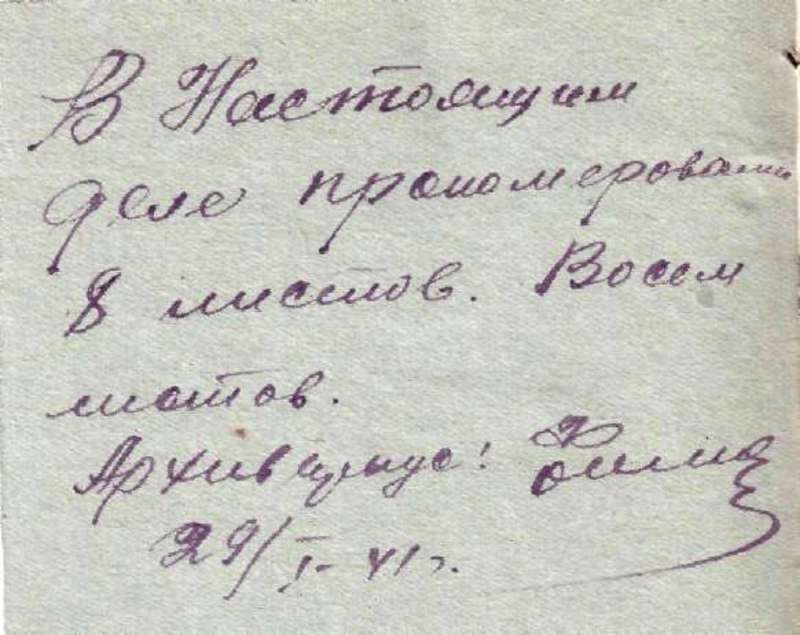 В Настоящим
деле прономеровани
8 листов. Восем
листов.
Архивариус:
29/I-41г.